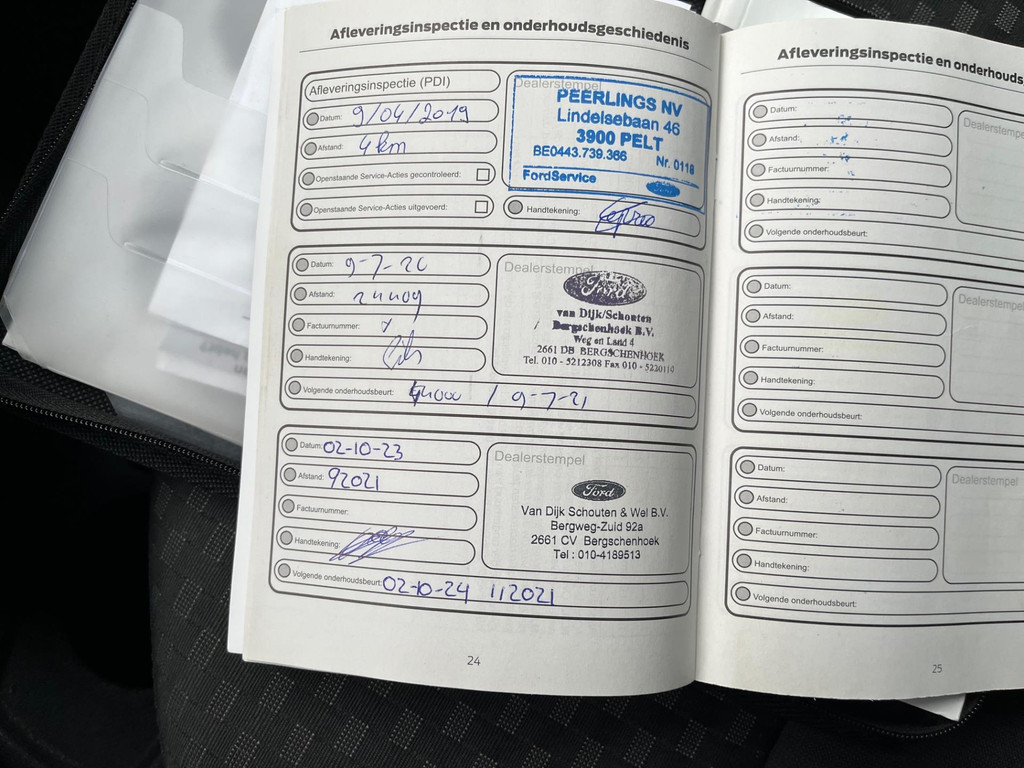 Afleveringsinspectie en onderhoudsgeschiedenis
Afleveringsinspectie (PDI)
Datum: 9/04/2019
Afstand: 4 km
Openstaande Service-Acties gecontroleerd:
Openstaande Service-Acties uitgevoerd:
Dealerstempel
PEERLINGS NV
Lindelsebaan 46
3900 PELT
BE0443.739.366 Nr. 0118
FordService
Ford
Handtekening:
Datum: 9-7-20
Afstand:
Factuurnummer:
Handtekening:
Volgende onderhoudsbeurt: / 9-7-21
Dealerstempel
Ford
van Dijk/Schouten
Bergschenhoek B.V.
Weg en Land 4
2661 DB BERGSCHENHOEK
Tel. 010 - 5212308 Fax 010 - 5220119
Datum: 02-10-23
Afstand: 92021
Factuurnummer:
Handtekening:
Volgende onderhoudsbeurt: 02-10-24 112021
Dealerstempel
Ford
Van Dijk Schouten & Wel B.V.
Bergweg-Zuid 92a
2661 CV Bergschenhoek
Tel : 010-4189513
24
Afleveringsinspectie en onderhouds
Datum:
Afstand:
Factuurnummer:
Handtekening:
Volgende onderhoudsbeurt:
Dealerstempel
Datum:
Afstand:
Factuurnummer:
Handtekening:
Volgende onderhoudsbeurt:
Dealerstempel
Datum:
Afstand:
Factuurnummer:
Handtekening:
Volgende onderhoudsbeurt:
Dealerstempel
25